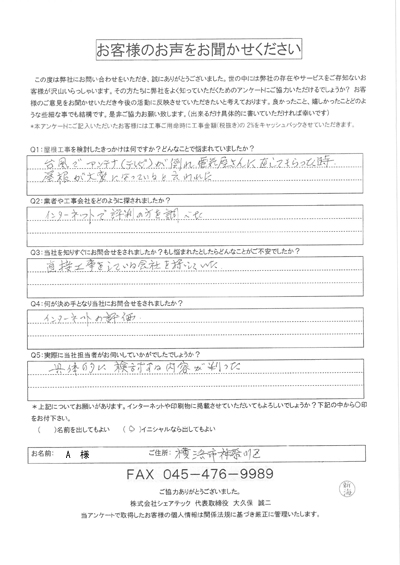 お客様のお声をお聞かせください
この度は弊社にお問い合わせをいただき、誠にありがとうございました。世の中には弊社の存在やサービスをご存知ないお
客様が沢山いらっしゃいます。その方たちに弊社をよく知っていただくためのアンケートにご協力いただけるでしょうか？お客
様のご意見をお聞かせいただき今後の活動に反映させていただきたいと考えております。良かったこと、嬉しかったことどのよ
うな些細な事でも結構です。是非ご協力お願い致します。（出来るだけ具体的に書いていただければ幸いです）
*本アンケートにご記入いただいたお客様には工事ご用命時に工事金額（税抜き）の2%をキャッシュバックさせていただきます。
Q1：屋根工事を検討したきっかけは何ですか？どんなことで悩まれていましたか？
台風でアンテナ（テレビ）が倒れ電気屋さんに直してもらった時
屋根が大変になっていると言われた
Q2：業者や工事会社をどのように探されましたか？
インターネットで評判の方を調べた
Q3：当社を知りすぐにお問合せをされましたか？もし悩まれたとしたらどんなことがご不安でしたか？
直接工事をしている会社を探していた
Q4：何が決め手となり当社にお問合せをされましたか？
インターネットの評価
Q5：実際に当社担当者がお伺いしていかがでしたでしょうか？
具体的に検討する内容が判った
*上記についてお願いがあります。インターネットや印刷物に掲載させていただいてもよろしいでしょうか？下記の中から〇印
をお付下さい。
（ ）名前を出してもよい （〇）イニシャルなら出してもよい
お名前： A 様 ご住所： 横浜市神奈川区
FAX 045-476-9989
ご協力ありがとうございました。
株式会社シェアテック 代表取締役 大久保 誠二
当アンケートで取得したお客様の個人情報は関係法規に基づき厳正に管理いたします。